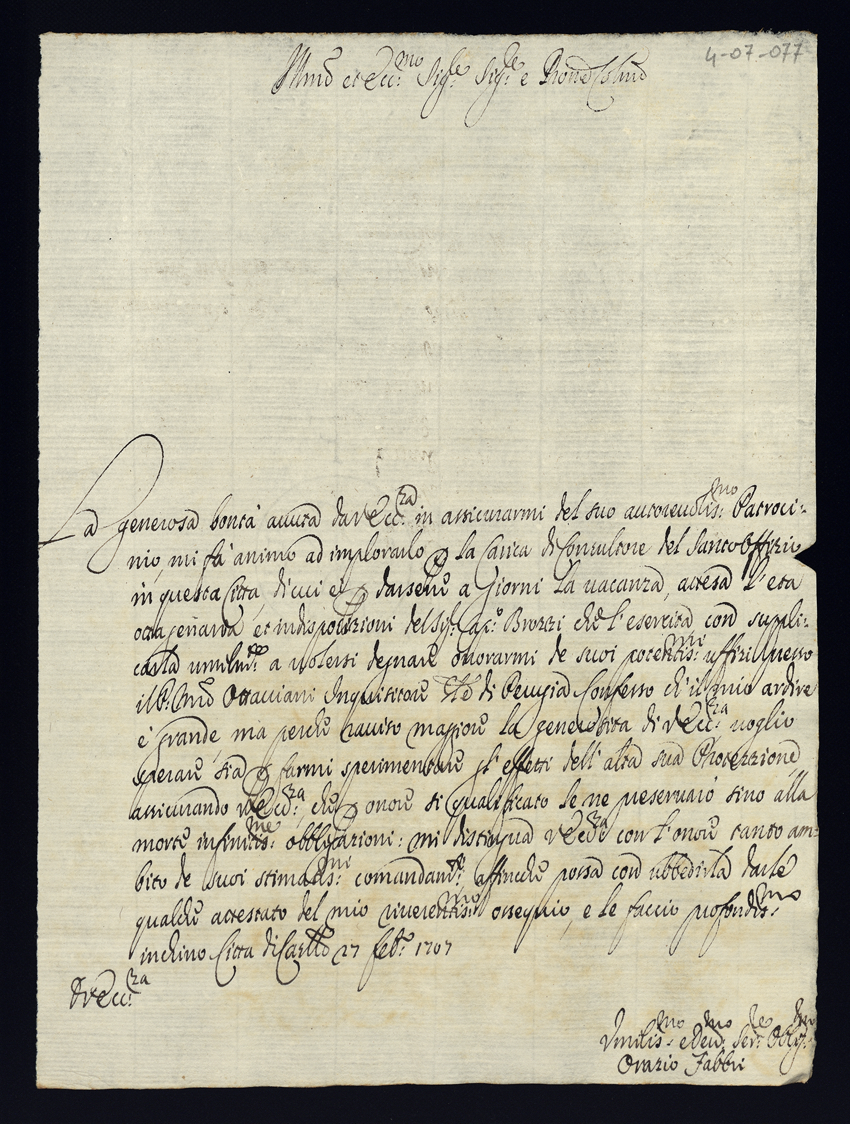 4-07-077
Illmo et Ecc:mo Sig:re Sig:re e Prone Colmo
La generosa bontà avuta da V Ecc:za in assicurarmi del suo autorevolis:mo Patroci-
nio, mi fà animo ad implorarlo p la Carica di Consultore del Santo Offizio
in questa Città, di cui è p darsene a Giorni la vacanza, attesa l'età
ottagenaria et indisposizioni del Sig: Brozzi che l'esercita con suppli-
carla umilm:te a volersi degnare onorarmi de suoi potentis:mi uffizi presso
il P: Ottaviani Inquisitore di Perugia Confesso ch'il mio ardire
è grande, ma perche havvito maggiore la generosità di V Ecc:za voglio
sperare sia p farmi sperimentare gl'effetti dell'alta sua Protezzione,
assicurando V Ecc:za che p onore si qualificato le ne preserverò sino alla
morte infinitis:me obbligazioni: mi distingua V Ecc:za con l'onore tanto am-
bito de suoi stimatis:mi comandam:ti affinche possa con ubbedirla darle
qualche attestato del mio riverentis:mo ossequio, e le faccio profondis:mo
inchino Città di Cast:llo 27 feb:ro 1707
D V Ecc:za
Vmilis:mo e Dev:mo Ser:re Oblig:mo
Orazio Fabbri